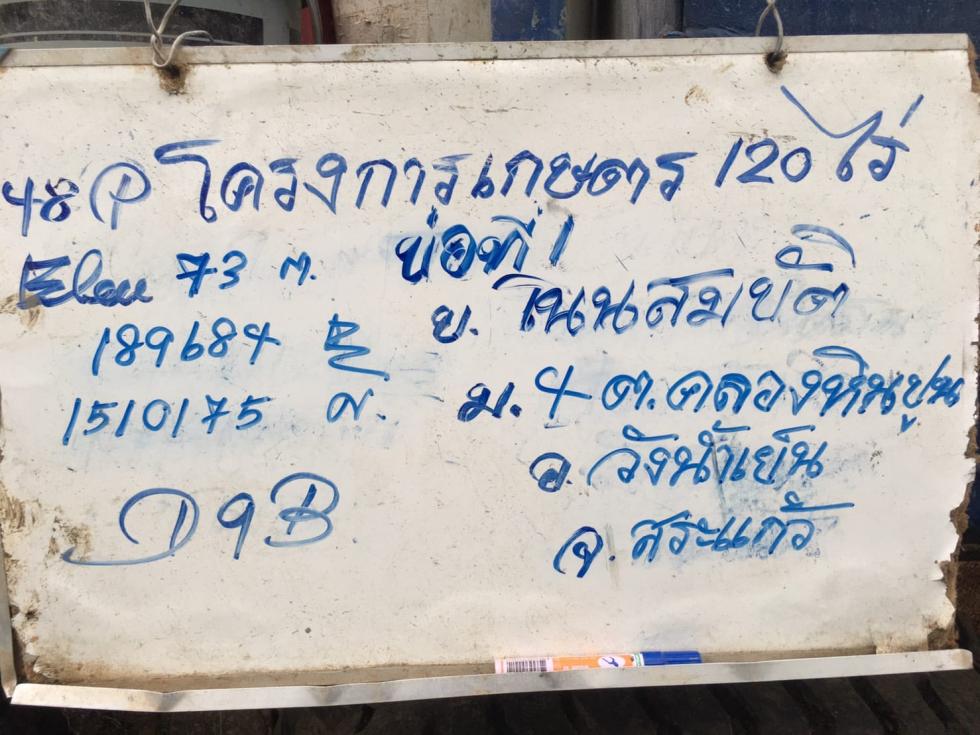 48P โครงการเกษตร 120 ไร่
Elev 73 ม. บ่อที่ 1
บ. เนินสมบัติ
189684 E
ม. 4 ต.คลองหินปูน
1510175 N.
อ. วังน้ำเย็น
จ. สระแก้ว
D9B